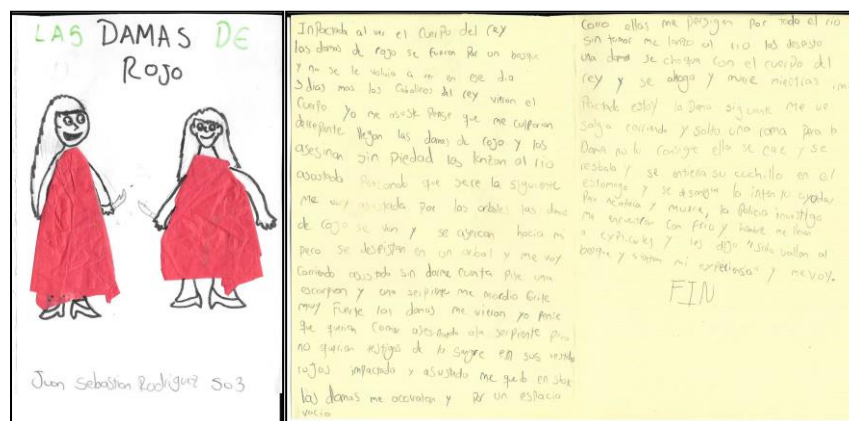 LAS DAMAS DE
ROJO
Juan Sebastian Rodriguez 503
Inpactada al ver el Cuerpo del rey
las damas de rojo se fueron Por un bosque
y no se le volvio a ver en ese dia
3 dias mas los Caballeros del rey vieron el
Cuerpo yo me asuste Pense que me culparian
derrepente llegan las damas de rojo y los
asesinan sin piedad los lanzan al rio
asustada Pensando que sere la siguiente
me voy asustada por los arboles las damas
de rojo se van y se acercan hacia mi
pero se despistan en un arbol y me voy
Corriendo asustada sin darme cuenta pise una
escorpion y una serpiente me mordio Grite
muy Fuerte las damas me vieron yo Pense
que querian Comer asesinando ala serpiente Pero
no querian testigos de la Sangre en sus vestidos
rojos impactado y asustado me quedo en shok
las damas me acorralan y por un espacia
vacio
Como ellas me persigen por todo el rio
sin temor me lanzo al rio las despisto
una dama se choca con el cuerpo del
rey y se ahoga y muere mientras im
Pactada estoy la Dama siguiente me ve
salgo corriendo y salto una rama Pero la
Dama no lo consigue ella se cae y se
resbala y se entierra su cuchillo en el
estomago y se desangra la intento ayudar
Pero muere, la Policia investiga
me encuentra con frio y hambre me llevan
a explicarles y les dejo "Solo vallan al
bosque y sientan mi experiensa" y me voy.
FIN